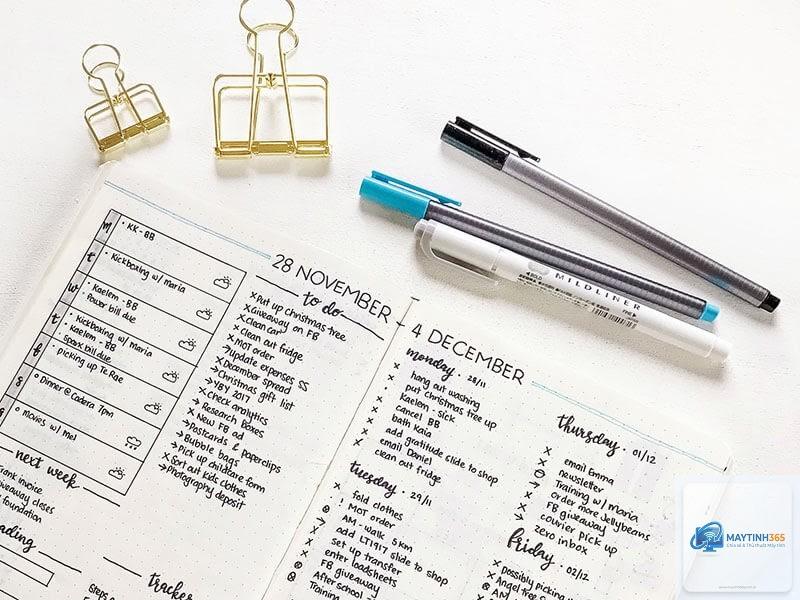 m
• KK - BB
t
• Kickboxing w/ Maria
w
• Kaelem - BB
• Power bill due
t
• Kickboxing w/ Maria
• Kaelem - BB
• Spark bill due
f
• picking up Te Rae
s
o Dinner @ Cadera 7pm
s
o movies w/ Mel
next week
invoice
giveaway closes
foundation
28 NOVEMBER –
to do
× Put up christmas tree
× Giveaway on FB
× clean car
× clean out fridge
× MOT order
→ update expenses $$
× December spread
→ Christmas gift list
→ YBY 2017
× check analytics
→ Research Boxes
× New FB ad
→ Postcards & paperclips
× Bubble bags
→ Pick up childcare form
× Sort out kids clothes
→ Photography deposit
tracker
4 DECEMBER
monday • 28/11
× hang out washing
× put christmas tree up
× Kaelem - sick
× cancel BB
× bath Kaia
× add gratitude slide to shop
× email Daniel
× clean out fridge
tuesday • 29/11
× fold clothes
× MOT order
AM - walk 5km
→ add LT1917 slide to shop
× set up transfer
× enter loadsheets
FB giveaway
After school
Training
thursday • 01/12
× email Emma
× newsletter
Training w/ maria
× order more Jellybeans
× FB giveaway
→ courier pick up
× zero inbox
friday • 02/12
× Possibly picking u
× Angel tree S
AM
MILDLINER
MAYTINH365